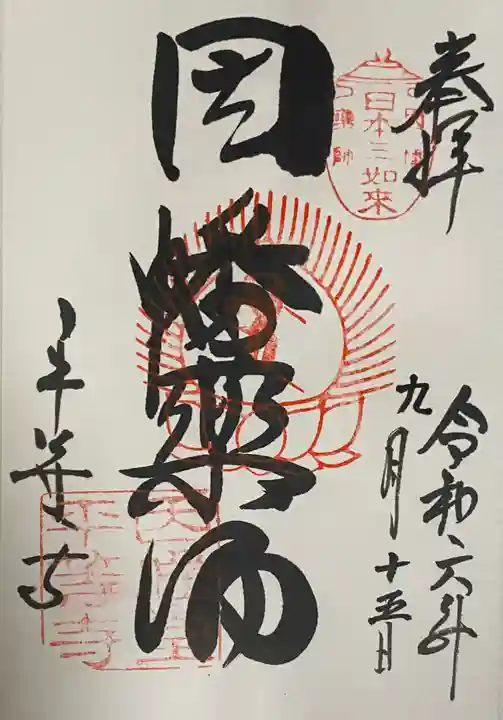 奉拝
令和六年
九月十五日
日本三如来
因幡
薬師
因幡薬師
平等寺
平等寺